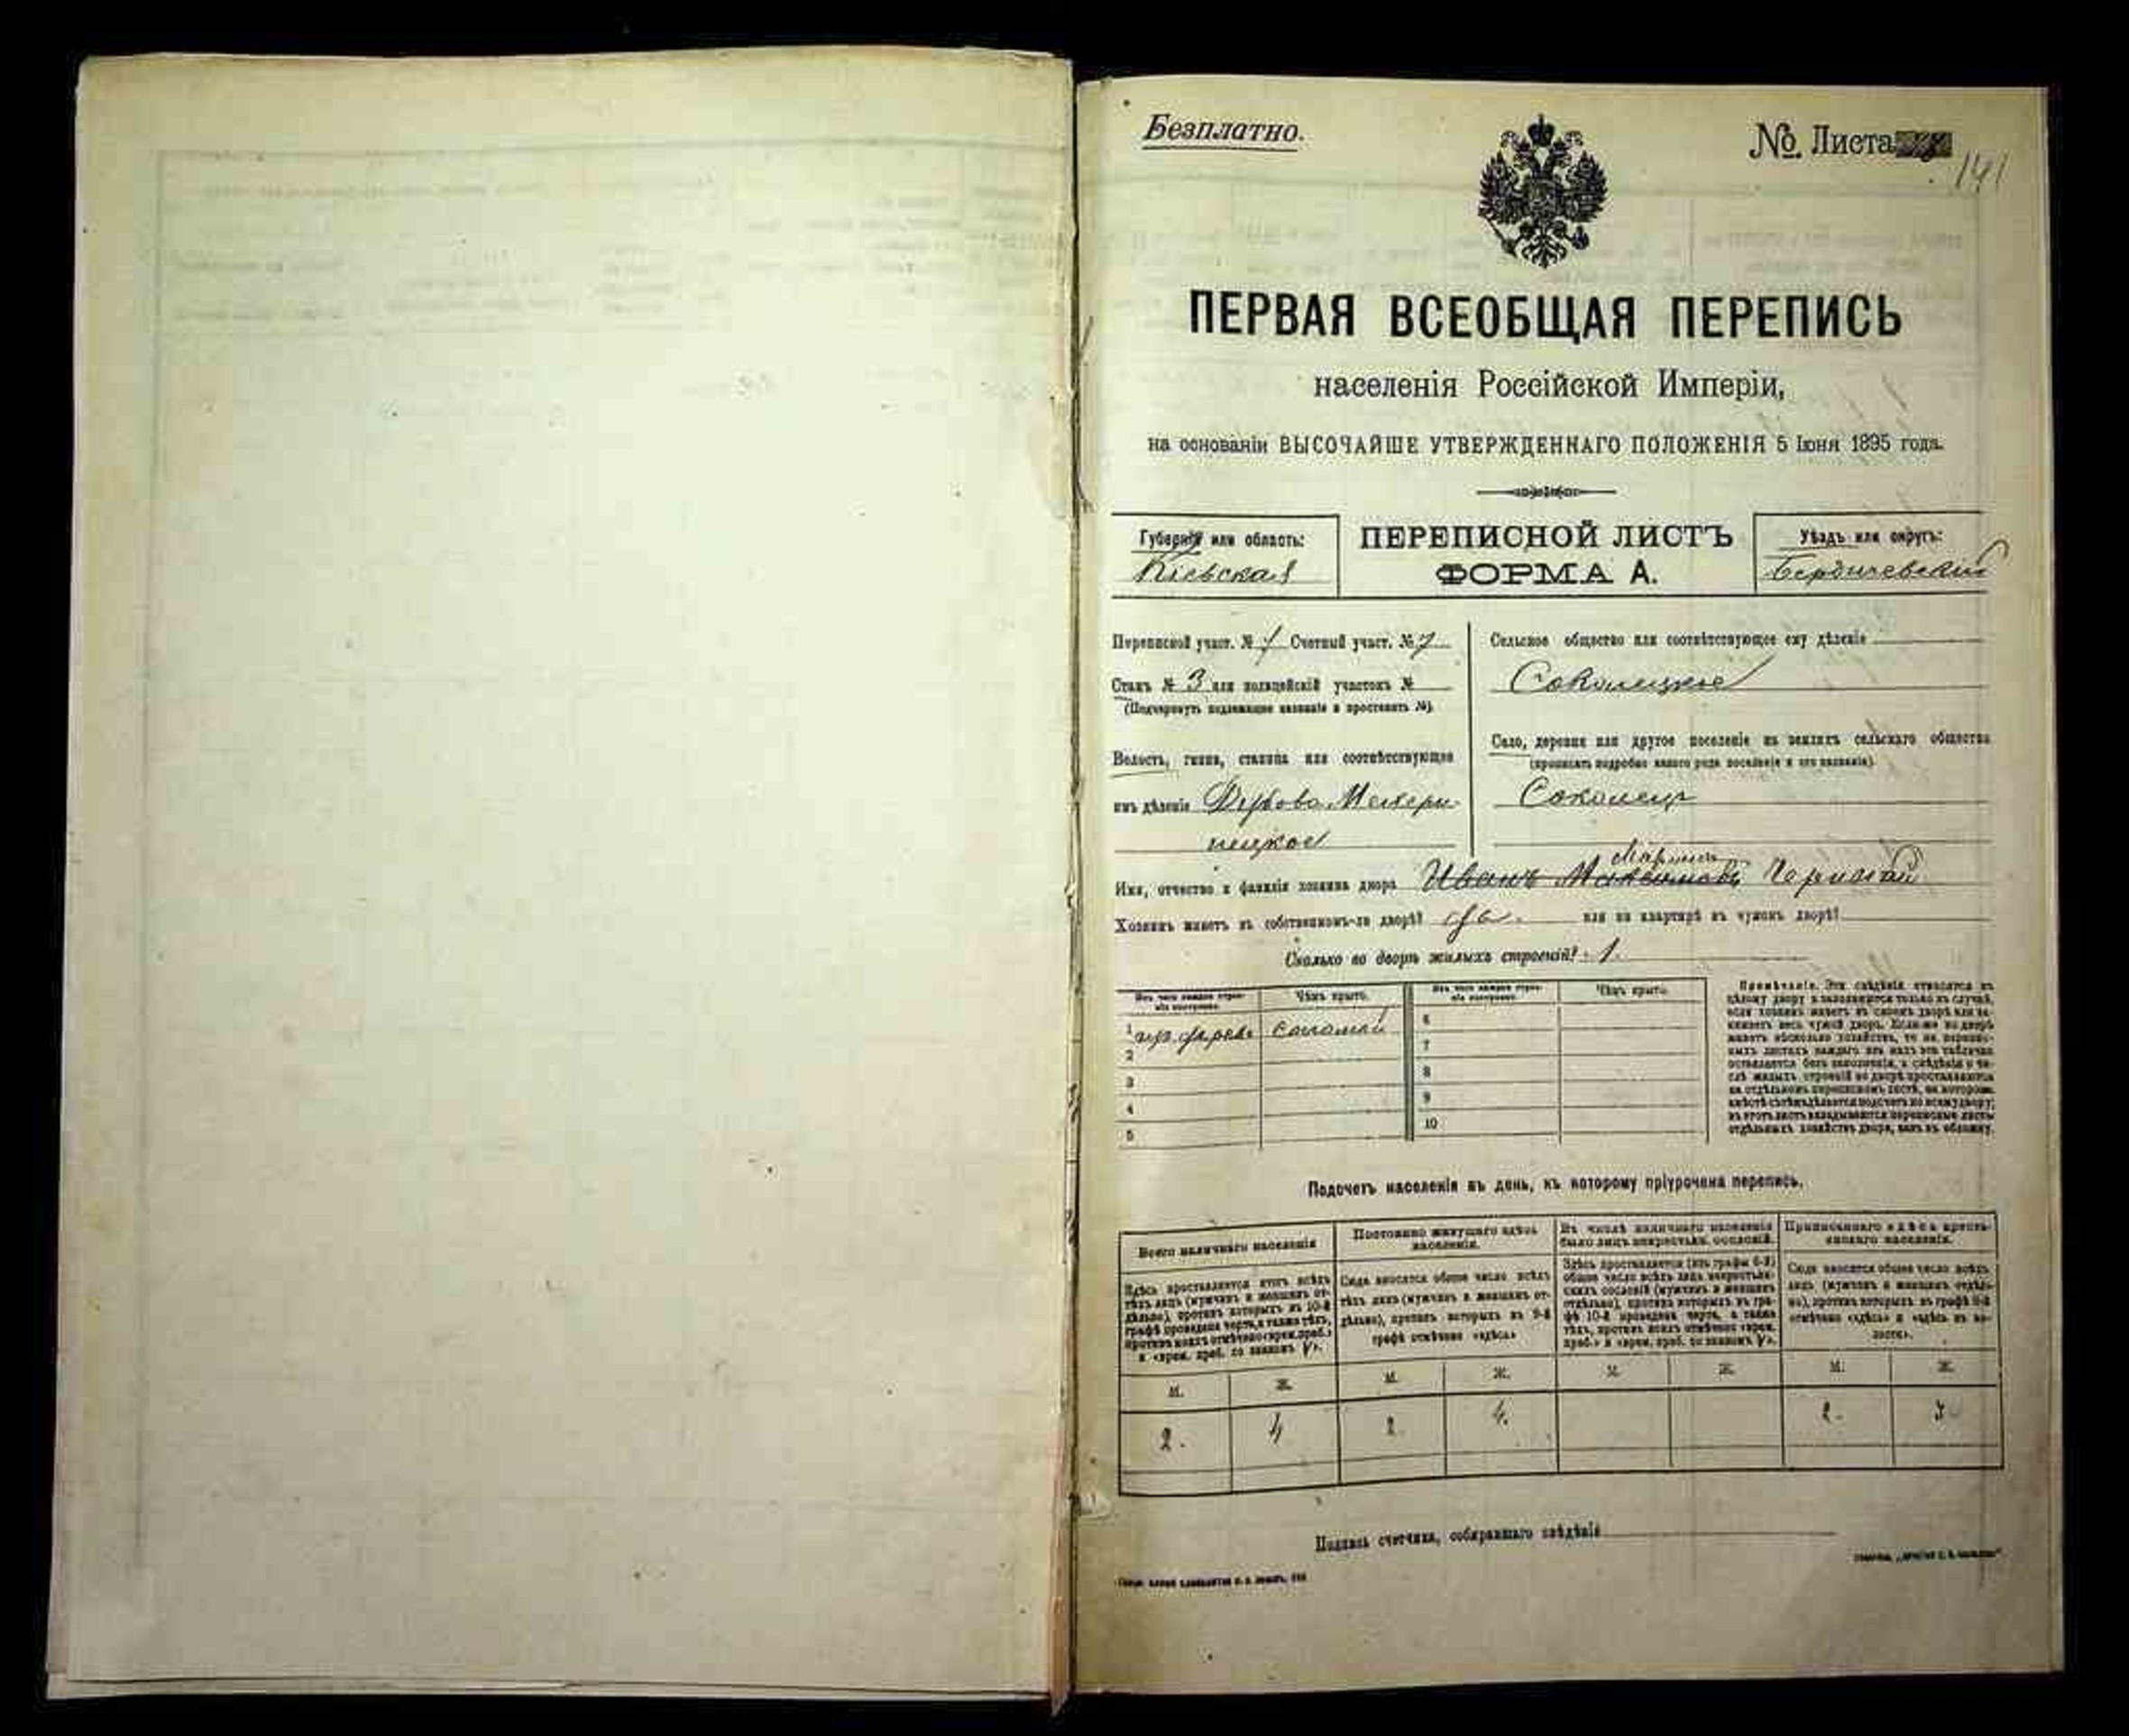 Безплатно.
№ Листа
141
ПЕРВАЯ ВСЕОБЩАЯ ПЕРЕПИСЬ
населенія Россійской Имперіи,
на основаніи ВЫСОЧАЙШЕ УТВЕРЖДЕННАГО ПОЛОЖЕНІЯ 5 Іюня 1895 года.
Губернія или область:
Кіевская
ПЕРЕПИСНОЙ ЛИСТЪ
ФОРМА А.
Уѣздъ или округъ:
Бердичевскій
Переписной участ. № 1 Счетный участ. № 7
Станъ № 3 или полицейскій участокъ №
(Подчеркнуть подлежащее названіе и проставить №).
Волость, гмина, станица или соотвѣтствующее
имъ дѣленіе
Сельское общество или соотвѣтствующее ему дѣленіе
Соколецкое
Село, деревня или другое поселеніе на земляхъ сельскаго общества
(прописать подробно какого рода поселеніе и его названіе)
Соколецъ
Имя, отчество и фамилія хозяина двора Иванъ
Хозяинъ живетъ въ собственномъ-ли дворѣ? да. или на квартирѣ въ чужомъ дворѣ?
Сколько во дворѣ жилыхъ строеній? 1.
Изъ чего каждое строеніе построено. Чѣмъ крыто. Изъ чего каждое строеніе построено. Чѣмъ крыто.
1 соломой 6
2 7
3 8
4 9
5 10
Примѣчаніе. Эти свѣдѣнія относятся къ
цѣлому двору и заполняются только въ случаѣ,
если хозяинъ живетъ въ своемъ дворѣ или за-
нимаетъ весь чужой дворъ. Если-же во дворѣ
живетъ нѣсколько хозяйствъ, то на перепис-
ныхъ листахъ каждаго изъ нихъ эта табличка
оставляется безъ заполненія, а свѣдѣнія о чи-
слѣ жилыхъ строеній во дворѣ проставляются
на отдѣльномъ переписномъ листѣ, на которомъ
вмѣстѣ съ тѣмъ дѣлается подсчетъ по всему двору;
въ этотъ листъ вкладываются переписные листы
отдѣльныхъ хозяйствъ двора, какъ въ обложку.
Подсчетъ населенія въ день, къ которому пріурочена перепись.
Всего наличнаго населенія
Здѣсь проставляется итогъ всѣхъ
тѣхъ лицъ (мужчинъ и женщинъ от-
дѣльно), противъ которыхъ въ 10-й
графѣ проведена черта, а также тѣхъ,
противъ коихъ отмѣчено «врем. преб.»
и «врем. преб. со знакомъ V».
Постоянно живущаго здѣсь
населенія.
Сюда вносится общее число всѣхъ
тѣхъ лицъ (мужчинъ и женщинъ от-
дѣльно), противъ которыхъ въ 9-й
графѣ отмѣчено «здѣсь»
Въ числѣ наличнаго населенія
было лицъ некрестьян. сословій.
Здѣсь проставляется (изъ графы 6-й)
общее число всѣхъ лицъ некрестьян-
скихъ сословій (мужчинъ и женщинъ
отдѣльно), противъ которыхъ въ гра-
фѣ 10-й проведена черта, а также
тѣхъ, противъ коихъ отмѣчено «врем.
преб.» и «врем. преб. со знакомъ V».
Приписаннаго здѣсь кресть-
янскаго населенія.
Сюда вносится общее число всѣхъ
лицъ (мужчинъ и женщинъ отдѣль-
но), противъ которыхъ въ графѣ 8-й
отмѣчено «здѣсь» и «здѣсь въ во-
лости».
М. Ж. М. Ж. М. Ж. М. Ж.
2. 4 2. 4. 2.
Подпись счетчика, собиравшаго свѣдѣнія